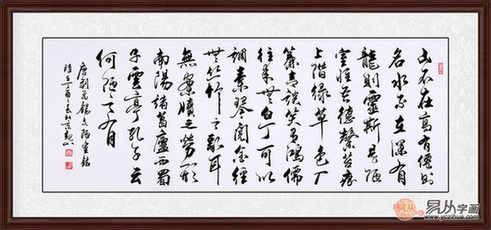 山不在高有僊則
名水不在深有
龍則靈斯是陋
室惟吾德馨苔痕
上階綠草色入
簾青談笑有鴻儒
往來無白丁可以
調素琴閱金經
無絲竹之亂耳
無案牘之勞形
南陽諸葛廬西蜀
子雲亭孔子云
何陋之有
唐劉禹錫文陋室銘
易从字画
www.yczihua.com